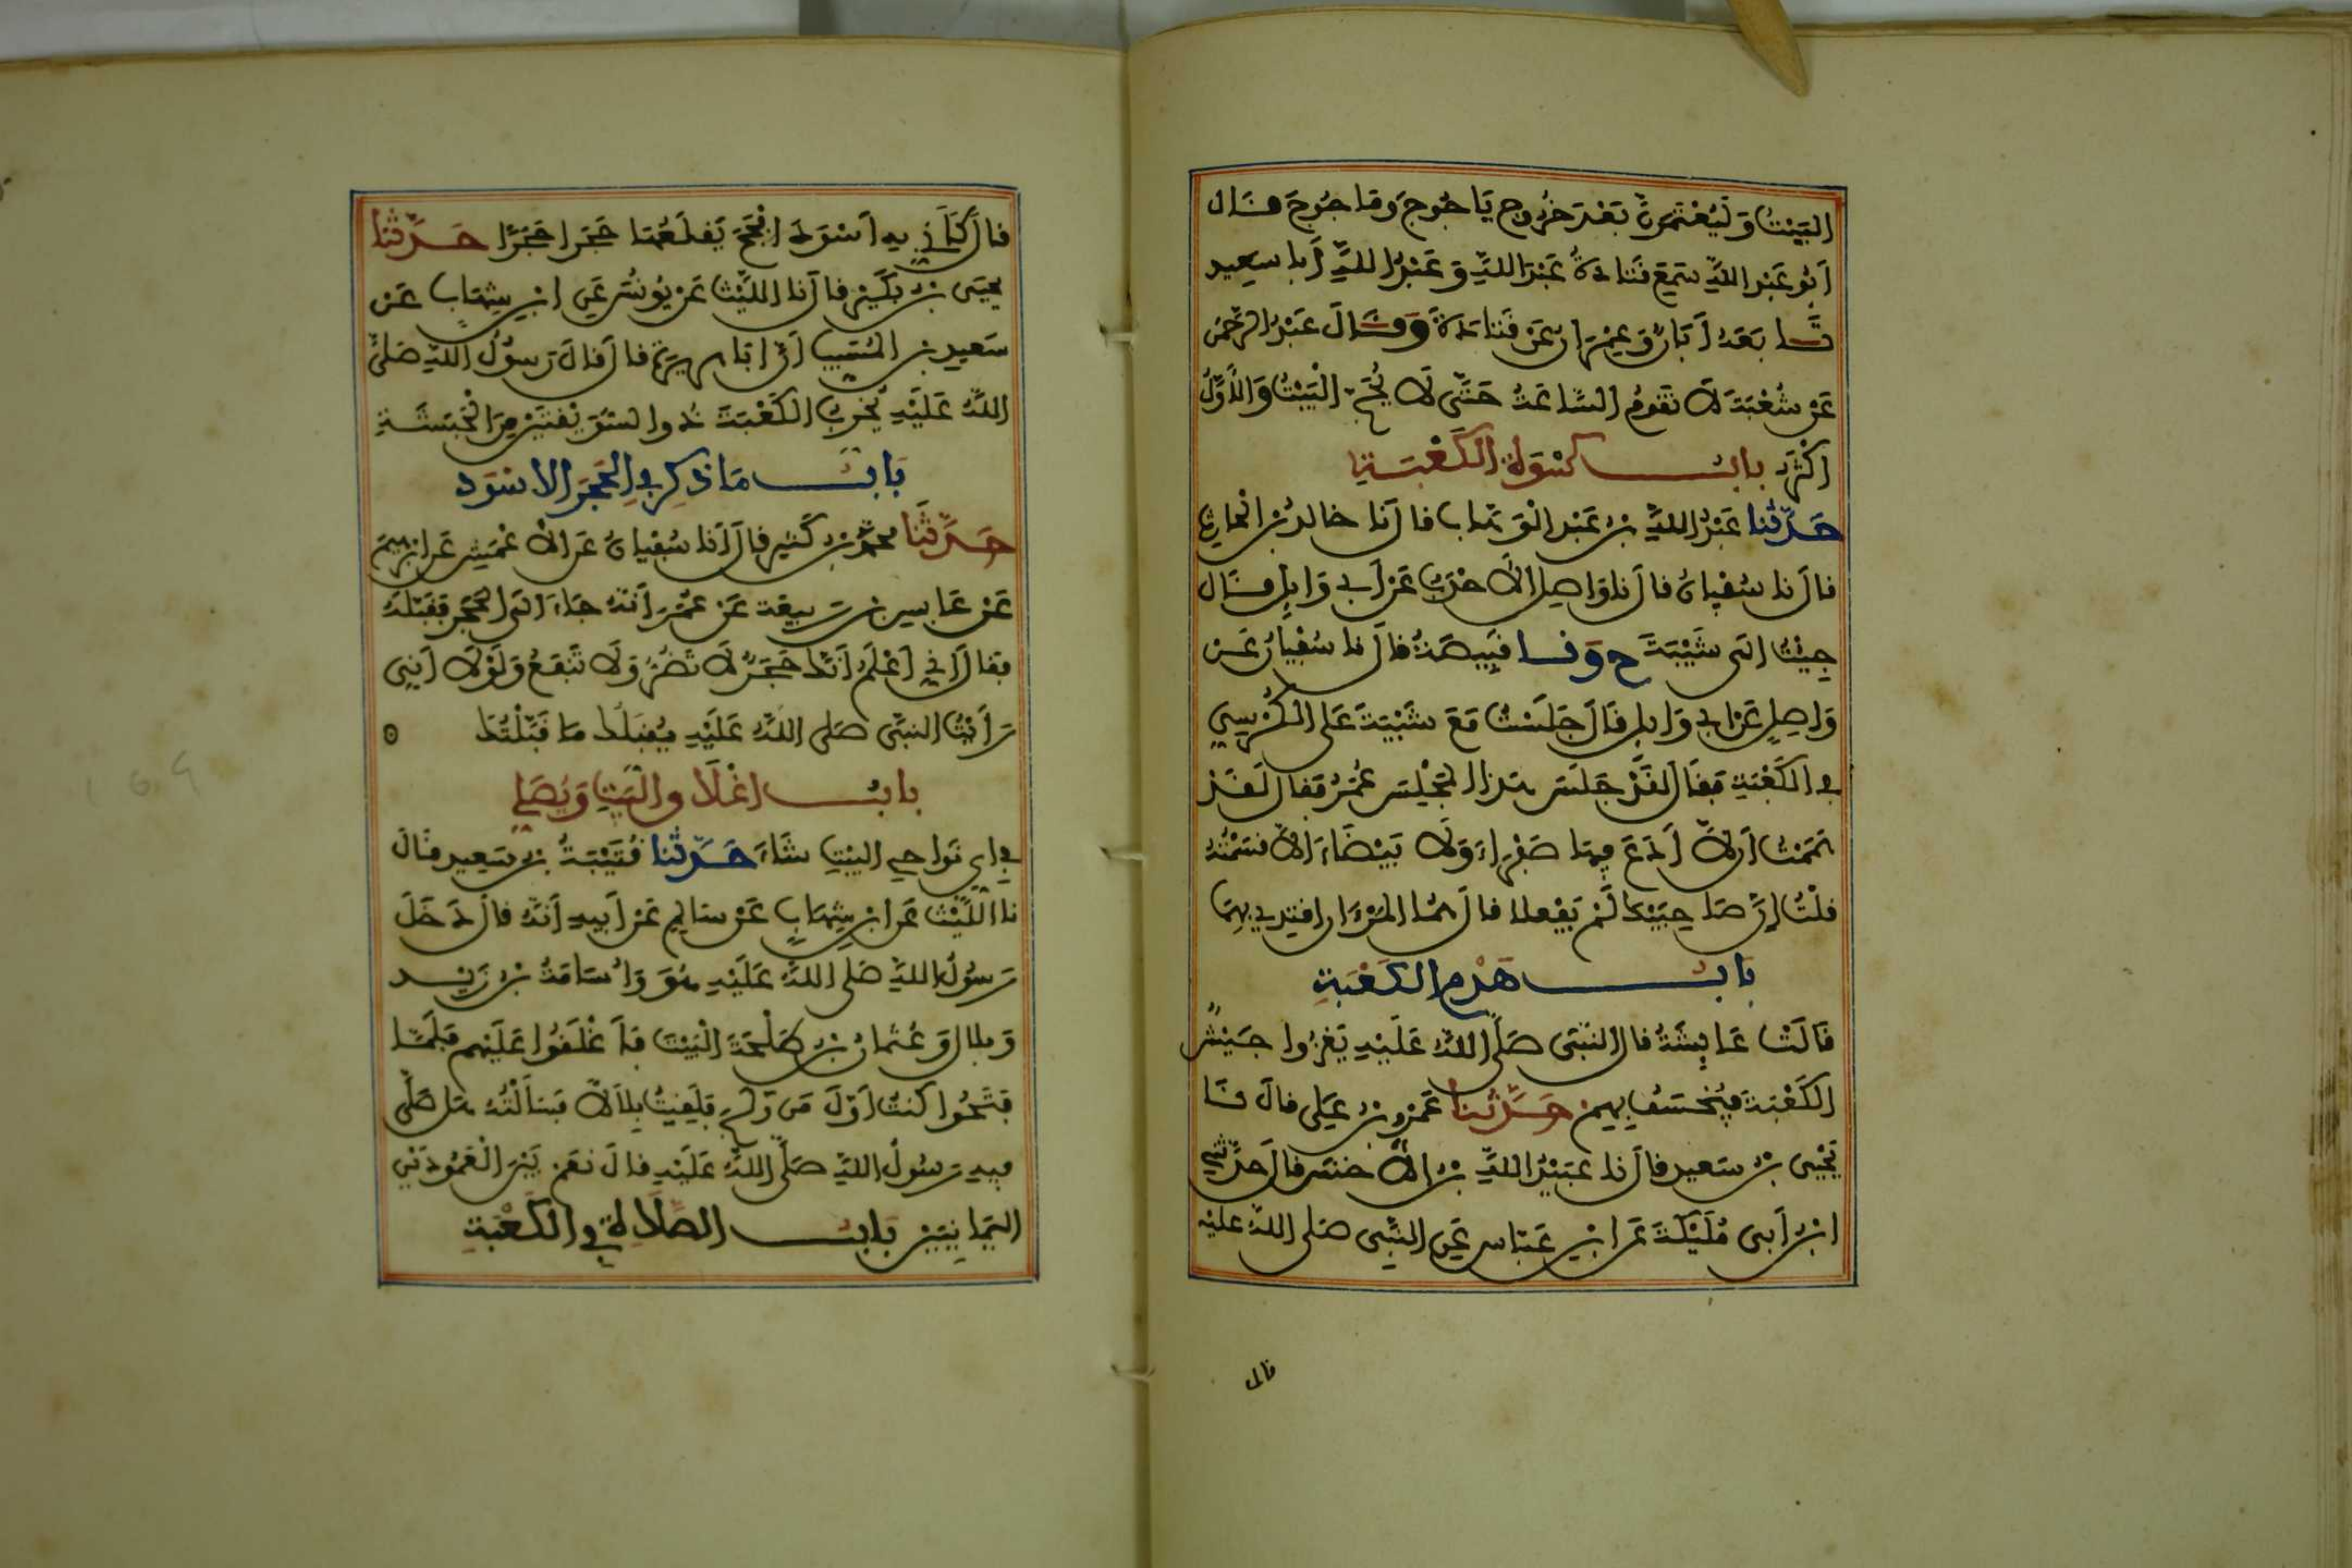 البَيْتُ وَلَيُعْتَمَرَنَّ بَعْدَ خُرُوجِ يَاجُوجَ وَمَاجُوجَ قَالَ
أَبُو عَبْدِ اللَّهِ سَمِعَ قَتَادَةُ عَبْدَ اللَّهِ وَعَبْدُ اللَّهِ أَبَا سَعِيد
تَابَعَهُ أَبَانُ وَعِمْرَانُ عَنْ قَتَادَةَ وَقَالَ عَبْدُ الرَّحْمَنِ
عَنْ شُعْبَةَ لَا تَقُومُ السَّاعَةُ حَتَّى لَا يُحَجَّ الْبَيْتُ وَالْأَوَّلُ
أَكْثَرُ بَابُ كِسْوَةِ الْكَعْبَةِ
حَدَّثَنَا عَبْدُ اللَّهِ بْنُ عَبْدِ الْوَهَّابِ قَالَ نَا خَالِدُ بْنُ الْحَارِثِ
قَالَ نَا سُفْيَانُ قَالَ نَا وَاصِلُ الْأَحْدَبُ عَنْ أَبِي وَايِلٍ قَالَ
جِيْتُ إِلَى شَيْبَةَ ح وَنَا قَبِيصَةُ قَالَ نَا سُفْيَانُ عَنْ
وَاصِلٍ عَنْ أَبِي وَايِلٍ قَالَ جَلَسْتُ مَعَ شَيْبَةَ عَلَى الْكُرْسِيِّ
فِي الْكَعْبَةِ فَقَالَ لَقَدْ جَلَسَ هَذَا الْمَجْلِسَ عُمَرُ فَقَالَ لَقَدْ
هَمَمْتُ أَنْ لَا أَدَعَ فِيهَا صَفْرَاءَ وَلَا بَيْضَاءَ إِلَّا قَسَمْتُهُ
قُلْتُ إِنَّ صَاحِبَيْكَ لَمْ يَفْعَلَا قَالَ هُمَا الْمَرْءَانِ أَقْتَدِي بِهِمَا
بَابُ هَدْمِ الْكَعْبَةِ
قَالَتْ عَايِشَةُ قَالَ النَّبِيُّ صَلَّى اللَّهُ عَلَيْهِ يَغْزُوا جَيْشٌ
الْكَعْبَةَ فَيُخْسَفُ بِهِمْ حَدَّثَنَا عَمْرُو بْنُ عَلِي قَالَ نَا
يَحْيَى بْنُ سَعِيدٍ قَالَ نَا عُبَيْدُ اللَّهِ بْنُ الْأَخْنَسِ قَالَ حَدَّثَنِي
ابْنُ أَبِي مُلَيْكَةَ عَنِ ابْنِ عَبَّاسٍ عَنِ النَّبِيِّ صَلَّى اللَّهُ عَلَيْهِ
قال
قَالَ كَأَنِّي بِهِ أَسْوَدَ أَفْحَجَ يَقْلَعُهَا حَجَرًا حَجَرًا حَدَّثَنَا
يَحْيَى بْنُ بُكَيْرٍ قَالَ نَا اللَّيْثُ عَنْ يُونُسَ عَنِ ابْنِ شِهَابٍ عَنْ
سَعِيدِ بْنِ الْمُسَيِّبِ أَنَّ أَبَا هُرَيْرَةَ قَالَ قَالَ رَسُولُ اللَّهِ صَلَّى
اللَّهُ عَلَيْهِ يُخَرِّبُ الْكَعْبَةَ ذُو السُّوَيْقَتَيْنِ مِنَ الْحَبَشَةِ
بَابُ مَا ذُكِرَ فِي الْحَجَرِ الْأَسْوَدِ
حَدَّثَنَا مُحَمَّدُ بْنُ كَثِيرٍ قَالَ أَنَا سُفْيَانُ عَنِ الْأَعْمَشِ عَنْ إِبْرَهِيمَ
عَنْ عَابِسِ بْنِ رَبِيعَةَ عَنْ عُمَرَ أَنَّهُ جَاءَ إِلَى الْحَجَرِ فَقَبَّلَهُ
فَقَالَ إِنِّي أَعْلَمُ أَنَّكَ حَجَرٌ لَا تَضُرُّ وَلَا تَنْفَعُ وَلَوْلَا أَنِّي
رَأَيْتُ النَّبِيَّ صَلَّى اللَّهُ عَلَيْهِ يُقَبِّلُكَ مَا قَبَّلْتُكَ
بَابُ إِغْلَاقِ الْبَيْتِ وَيُصَلِّي
فِي أَيِّ نَوَاحِي الْبَيْتِ شَاءَ حَدَّثَنَا قُتَيْبَةُ بْنُ سَعِيدٍ قَالَ
نَا اللَّيْثُ عَنِ ابْنِ شِهَابٍ عَنْ سَالِمٍ عَنْ أَبِيهِ أَنَّهُ قَالَ دَخَلَ
رَسُولُ اللَّهِ صَلَّى اللَّهُ عَلَيْهِ هُوَ وَأُسَامَةُ بْنُ زَيْدٍ
وَبِلَالٌ وَعُثْمَانُ بْنُ طَلْحَةَ الْبَيْتَ فَأَغْلَقُوا عَلَيْهِمْ فَلَمَّا
فَتَحُوا كُنْتُ أَوَّلَ مَنْ وَلَجَ فَلَقِيتُ بِلَالًا فَسَأَلْتُهُ هَلْ صَلَّى
فِيهِ رَسُولُ اللَّهِ صَلَّى اللَّهُ عَلَيْهِ قَالَ نَعَمْ بَيْنَ الْعَمُودَيْنِ
الْيَمَانِيَيْنِ بَابُ الصَّلَاةِ فِي الْكَعْبَةِ